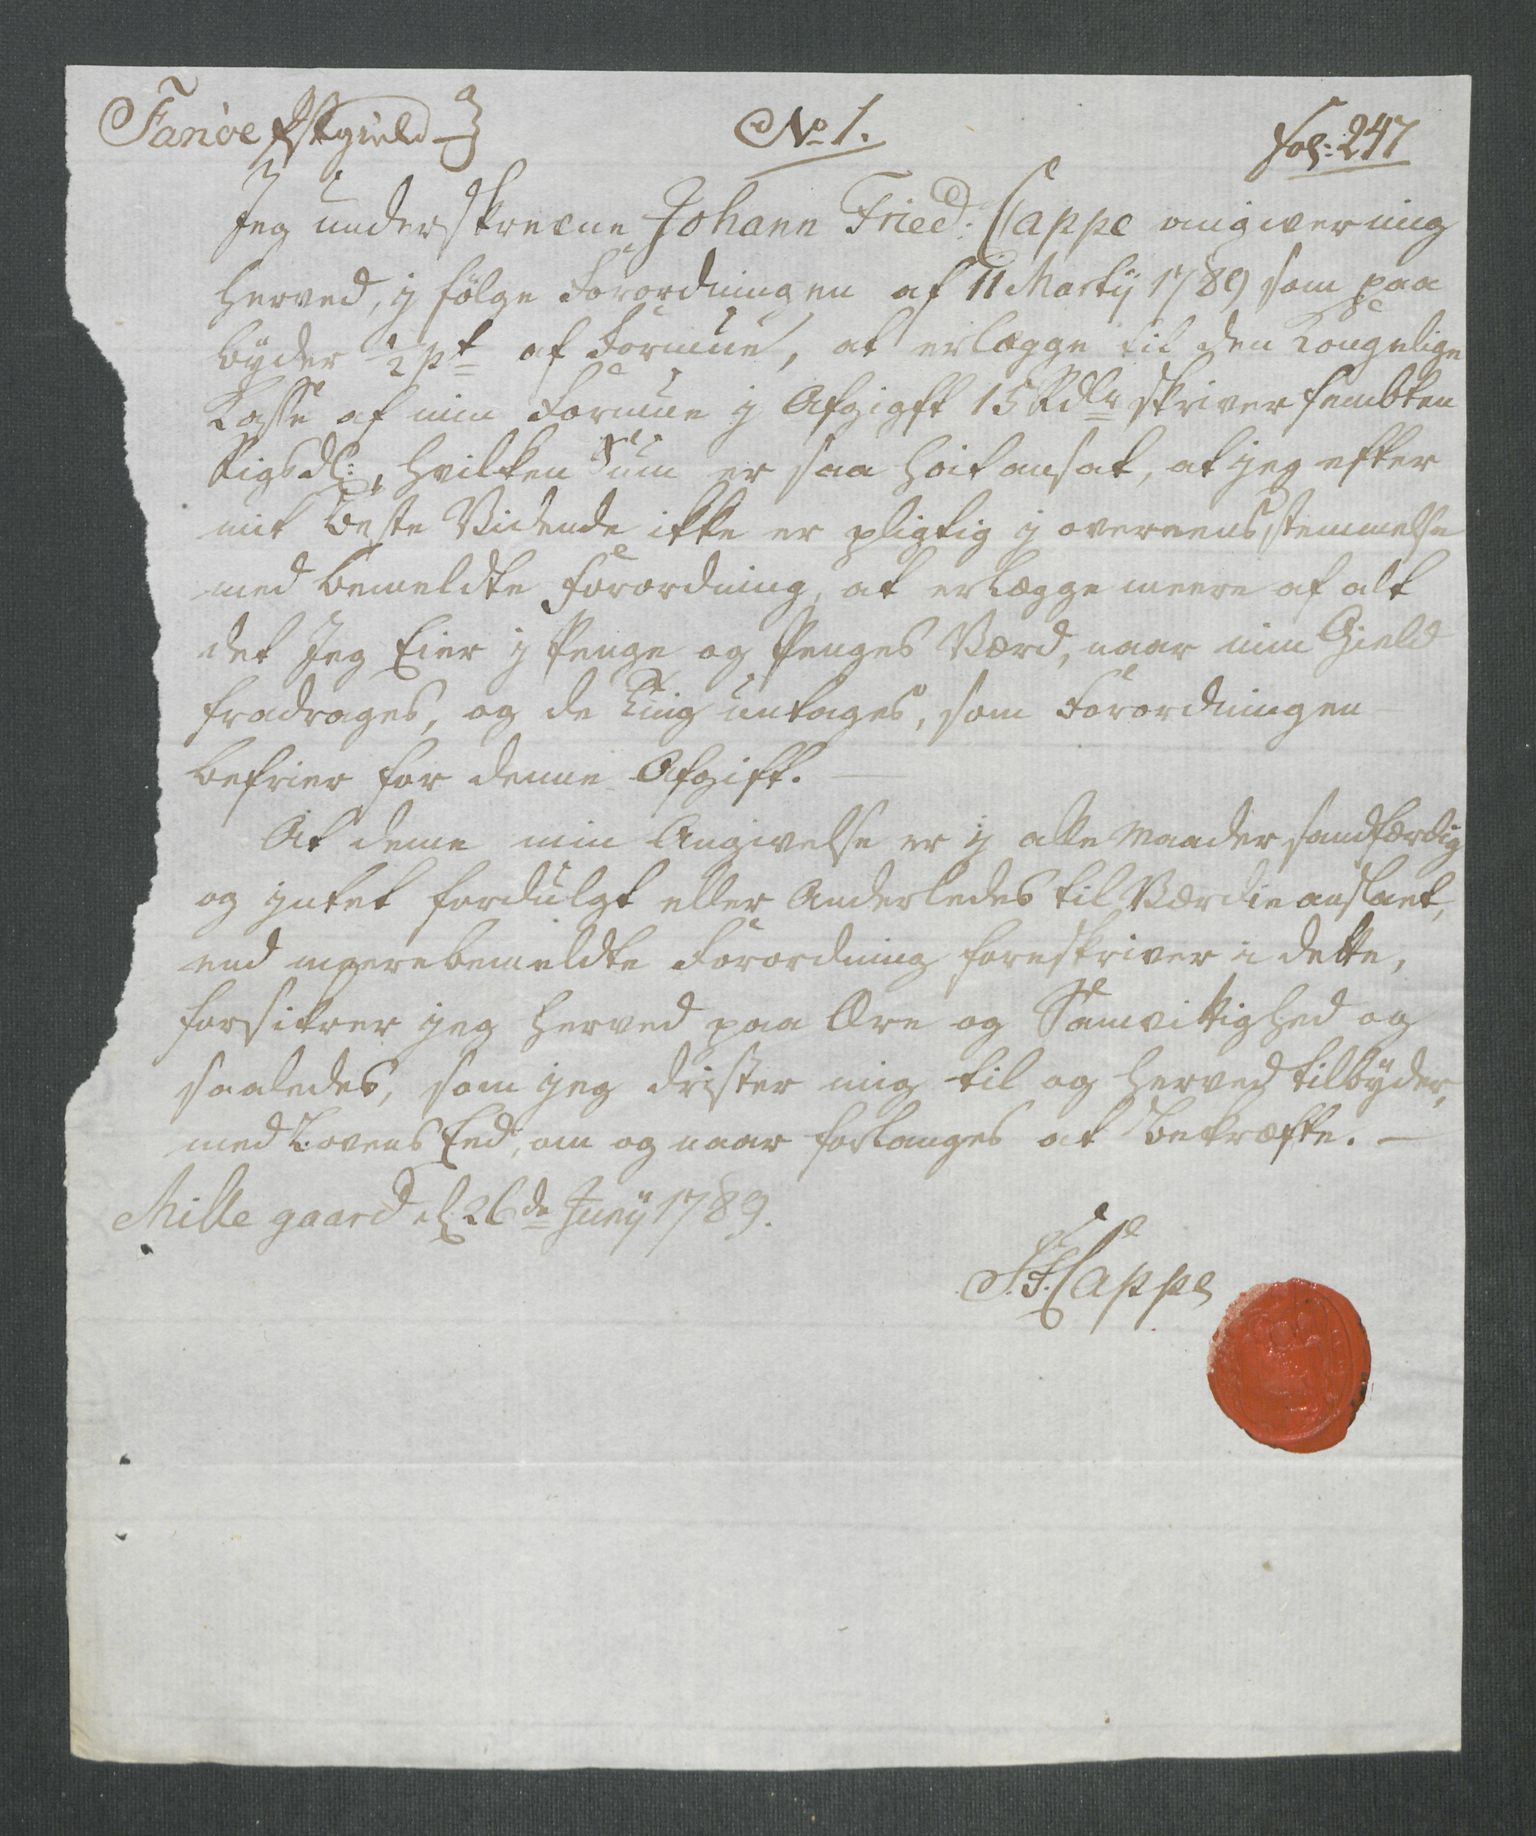 Fanöe Præstegield
No 1.
Fol: 247
Jeg underskrevne Johann Fried: Cappe angiver mig
herved, j følge Forordningen af 11 Martij 1789 som paa
byder ½ pt af Formue, at erlægge til den Kongelige
Kasse af min Formue j Afgigft 15 Rdlr skriver fembten
Rigsdl:, hvilken Sum er saa höit ansat, at jeg efter
mit beste Vidende ikke er pligtig j overeensstemmelse
med bemeldte Forordning, at erlægge meere af alt
det Jeg Eier j Penge og Penges Værd, naar min Gield
fradrages, og de Ting untages, som Forordningen
befrier for denne Afgift. —
At denne min Angivelse er j alle Maader sandfærdig
og jntet fordulgt eller Anderledes til Værdie anslaet,
end meerebemeldte Forordning foreskriver i dette,
forsikrer jeg herved paa Ære og Samvittighed og
saaledes, som jeg drister mig til og herved tilbyder,
med Lovens Eed, om og naar forlanges at bekræfte. —
Mille gaard d: 26de Junij 1789.
J. F. Cappe